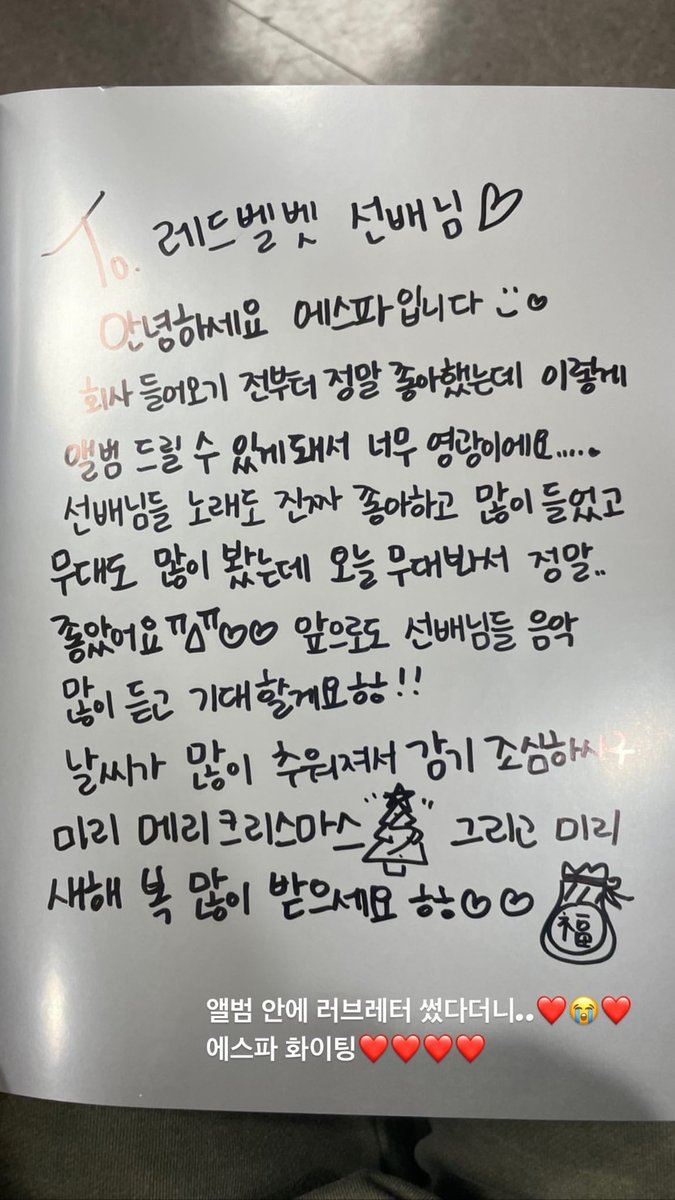 To. 레드벨벳 선배님♡
안녕하세요 에스파입니다
회사 들어오기 전부터 정말 좋아했는데 이렇게
앨범 드릴 수 있게돼서 너무 영광이에요.....
선배님들 노래도 진짜 좋아하고 많이 들었고
무대도 많이 봤는데 오늘 무대봐서 정말..
좋았어요ㅠ△ㅠ♡♡ 앞으로도 선배님들 음악
많이 듣고 기대할게요ㅎㅎ!!
날씨가 많이 추워져서 감기 조심하시구
미리 메리크리스마스 그리고 미리
새해 복 많이 받으세요 ㅎㅎ♡♡ 福
앨범 안에 러브레터 썼다더니..❤️😭❤️
에스파 화이팅❤️❤️❤️❤️